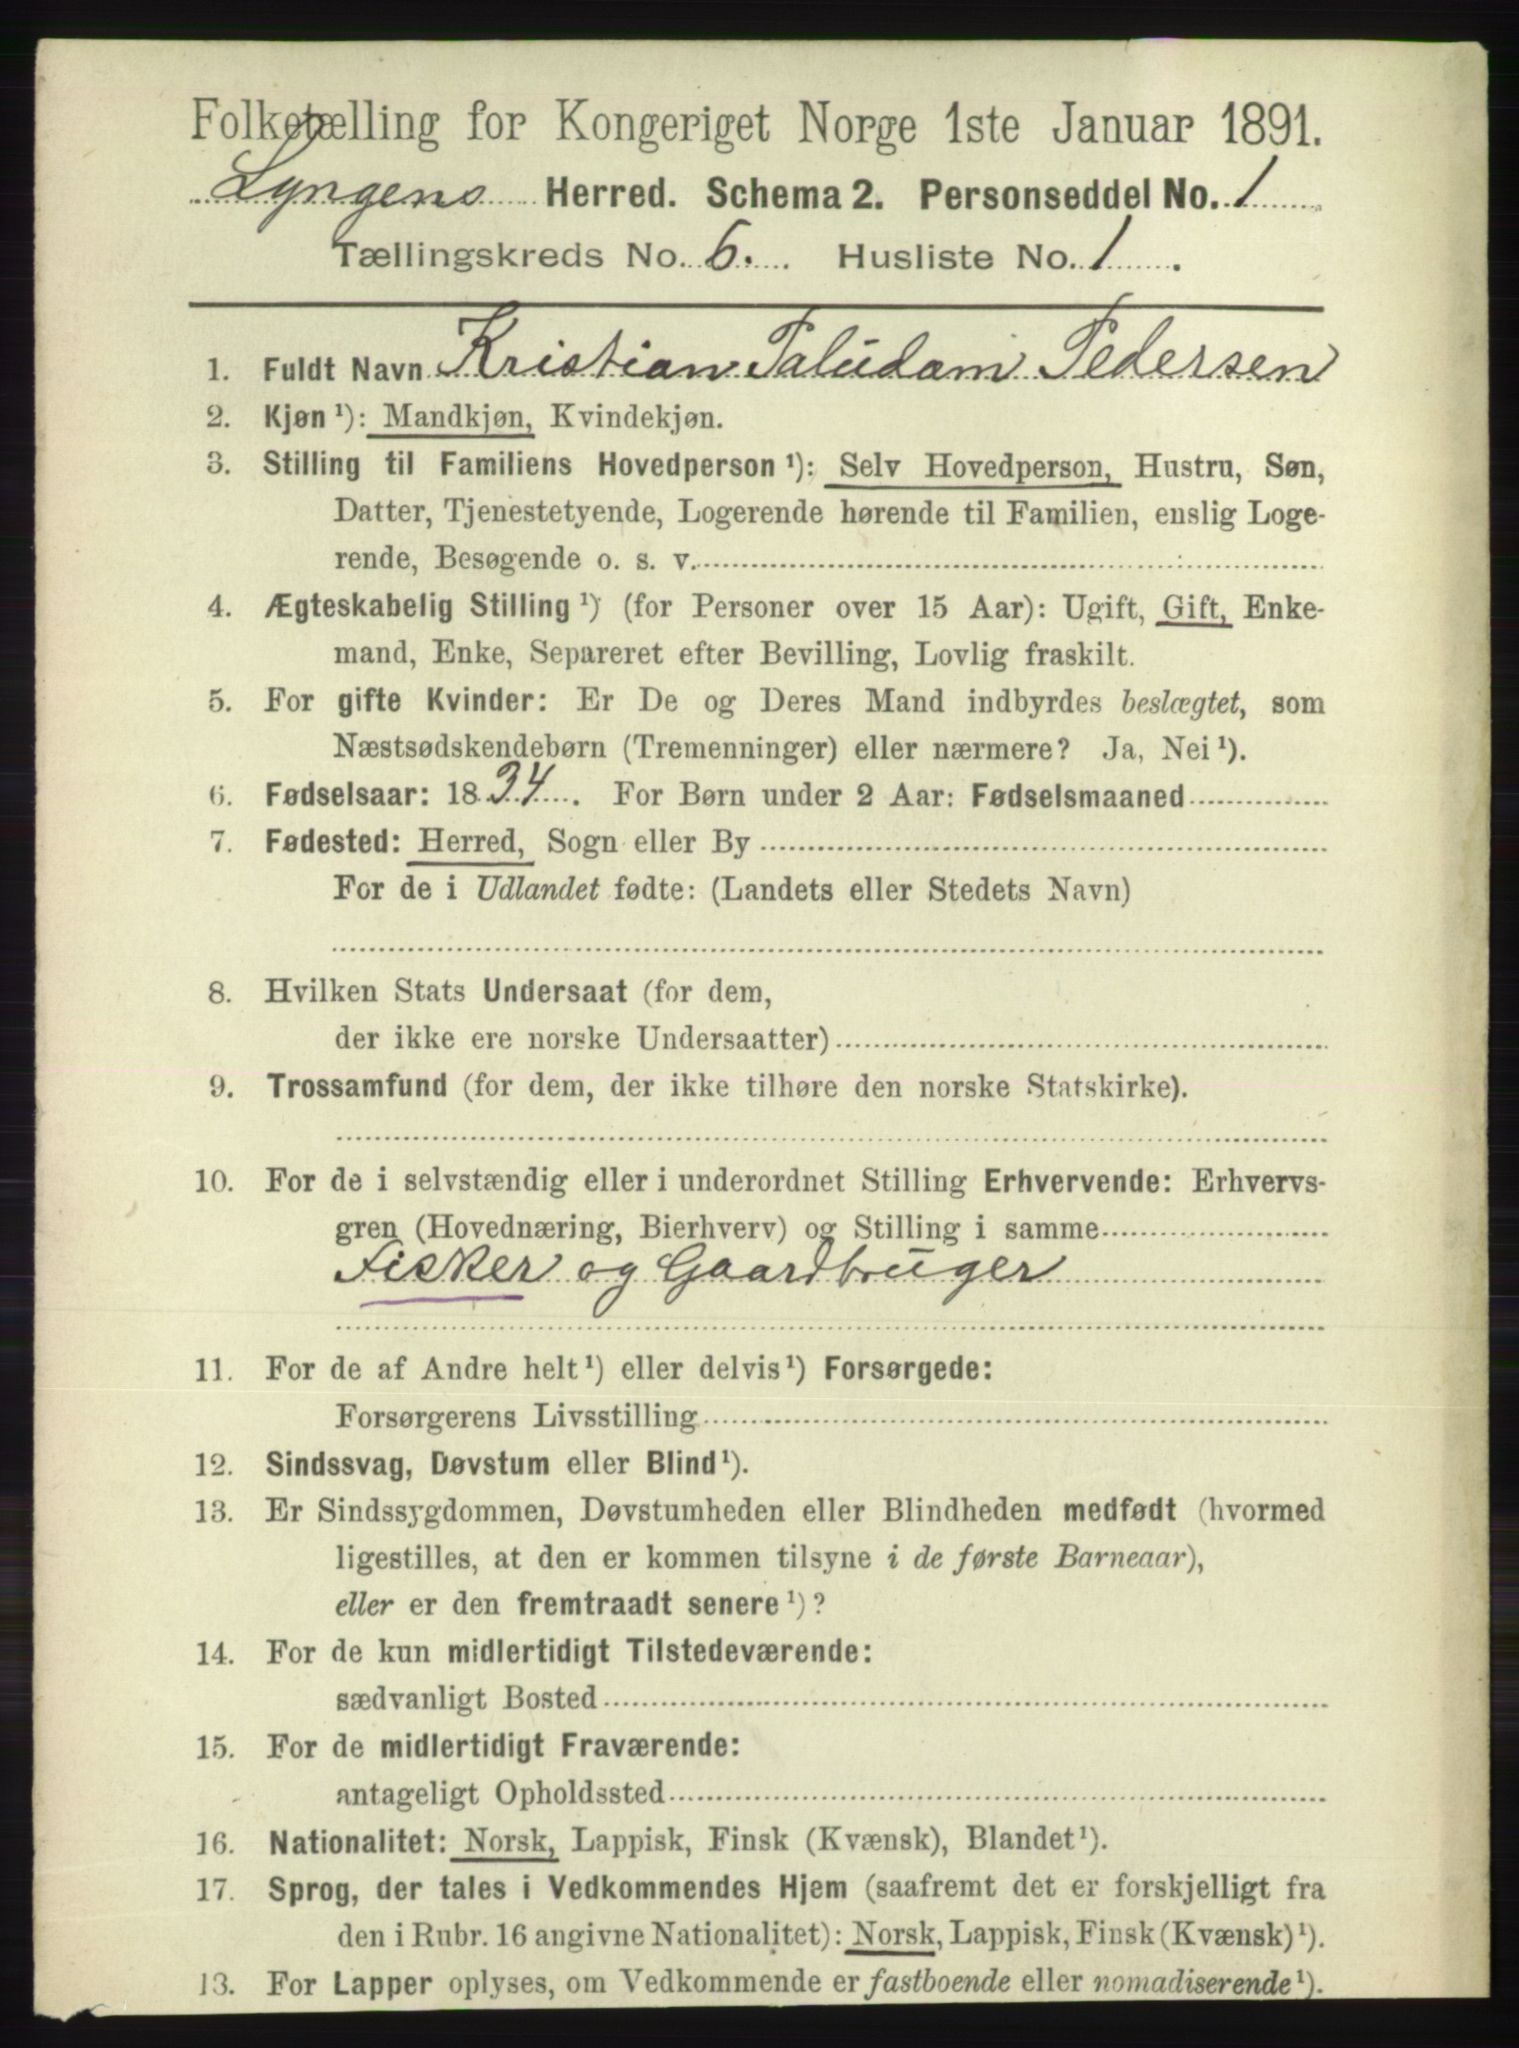 Folketælling for Kongeriget Norge 1ste Januar 1891.
Lyngens Herred. Schema 2. Personseddel No. 1
Tællingskreds No. 6. Husliste No. 1.
1. Fuldt Navn Kristian Paludam Pedersen
2. Kjøn ¹): Mandkjøn, Kvindekjøn.
3. Stilling til Familiens Hovedperson ¹): Selv Hovedperson, Hustru, Søn,
Datter, Tjenestetyende, Logerende hørende til Familien, enslig Loge-
rende, Besøgende o. s. v.
4. Ægteskabelig Stilling ¹) (for Personer over 15 Aar): Ugift, Gift, Enke-
mand, Enke, Separeret efter Bevilling, Lovlig fraskilt.
5. For gifte Kvinder: Er De og Deres Mand indbyrdes beslægtet, som
Næstsødskendebørn (Tremenninger) eller nærmere? Ja, Nei ¹).
6. Fødselsaar: 1834. For Børn under 2 Aar: Fødselsmaaned
7. Fødested: Herred, Sogn eller By
For de i Udlandet fødte: (Landets eller Stedets Navn)
8. Hvilken Stats Undersaat (for dem,
der ikke ere norske Undersaatter)
9. Trossamfund (for dem, der ikke tilhøre den norske Statskirke).
10. For de i selvstændig eller i underordnet Stilling Erhvervende: Erhvervs-
gren (Hovednæring, Bierhverv) og Stilling i samme
Fisker og Gaardbruger
11. For de af Andre helt ¹) eller delvis ¹) Forsørgede:
Forsørgerens Livsstilling
12. Sindssvag, Døvstum eller Blind ¹).
13. Er Sindssygdommen, Døvstumheden eller Blindheden medfødt (hvormed
ligestilles, at den er kommen tilsyne i de første Barneaar),
eller er den fremtraadt senere ¹)?
14. For de kun midlertidigt Tilstedeværende:
sædvanligt Bosted
15. For de midlertidigt Fraværende:
antageligt Opholdssted
16. Nationalitet: Norsk, Lappisk, Finsk (Kvænsk), Blandet ¹).
17. Sprog, der tales i Vedkommendes Hjem (saafremt det er forskjelligt fra
den i Rubr. 16 angivne Nationalitet): Norsk, Lappisk, Finsk (Kvænsk) ¹).
13. For Lapper oplyses, om Vedkommende er fastboende eller nomadiserende ¹).